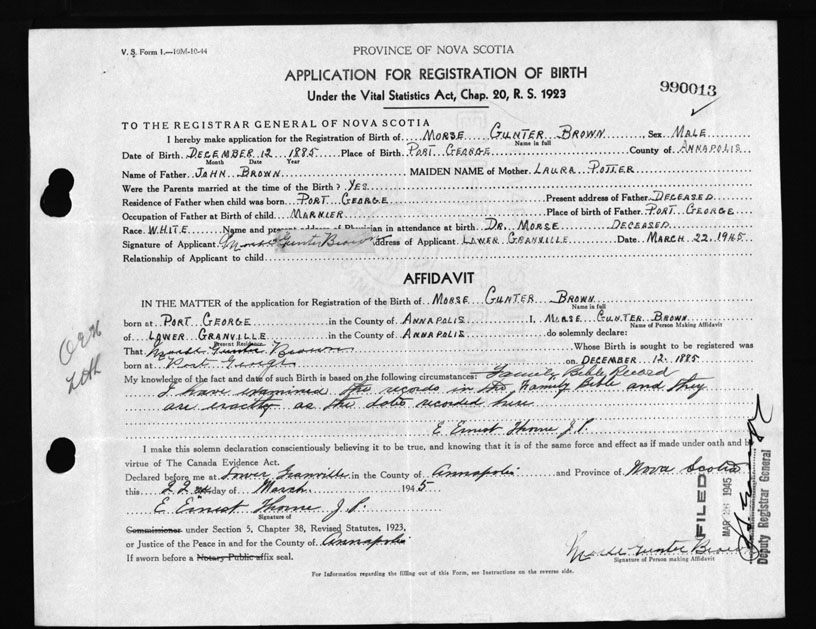 V. S. Form 1.—10M-10-44
PROVINCE OF NOVA SCOTIA
APPLICATION FOR REGISTRATION OF BIRTH
Under the Vital Statistics Act, Chap. 20, R. S. 1923
990013
TO THE REGISTRAR GENERAL OF NOVA SCOTIA
I hereby make application for the Registration of Birth of MORSE GUNTER BROWN Sex MALE
Name in full
Date of Birth DECEMBER 12 1885 Place of Birth PORT GEORGE County of ANNAPOLIS
Month Date Year
Name of Father JOHN BROWN MAIDEN NAME of Mother LAURA POTTER
Were the Parents married at the time of the Birth? YES
Residence of Father when child was born PORT GEORGE Present address of Father DECEASED
Occupation of Father at Birth of child MARNIER Place of birth of Father PORT GEORGE
Race WHITE Name and present address of Physician in attendance at birth DR. MORSE DECEASED
Signature of Applicant Morse Gunter Brown Address of Applicant LOWER GRANVILLE Date MARCH 22, 1945
Relationship of Applicant to child
AFFIDAVIT
IN THE MATTER of the application for Registration of the Birth of MORSE GUNTER BROWN
Name in full
born at PORT GEORGE in the County of ANNAPOLIS I, MORSE GUNTER BROWN
Name of Person Making Affidavit
of LOWER GRANVILLE in the County of ANNAPOLIS do solemnly declare:
Present Residence
That Morse Gunter Brown Whose Birth is sought to be registered was
born at Port George on DECEMBER 12 1885
My knowledge of the fact and date of such Birth is based on the following circumstances: Family Bible Record
I have examined the records in the Family Bible and they
are exactly as the dates recorded here
E Ernest Thorne J.P.
I make this solemn declaration conscientiously believing it to be true, and knowing that it is of the same force and effect as if made under oath and by
virtue of The Canada Evidence Act.
Declared before me at Lower Granville in the County of Annapolis and Province of Nova Scotia
this 22 day of March 1945
E Ernest Thorne J.P.
Signature of
Commissioner under Section 5, Chapter 38, Revised Statutes, 1923,
or Justice of the Peace in and for the County of Annapolis
If sworn before a Notary Public affix seal.
Morse Gunter Brown
Signature of Person making Affidavit
For Information regarding the filling out of this Form, see Instructions on the reverse side.
FILED
MAR 1945
Deputy Registrar General